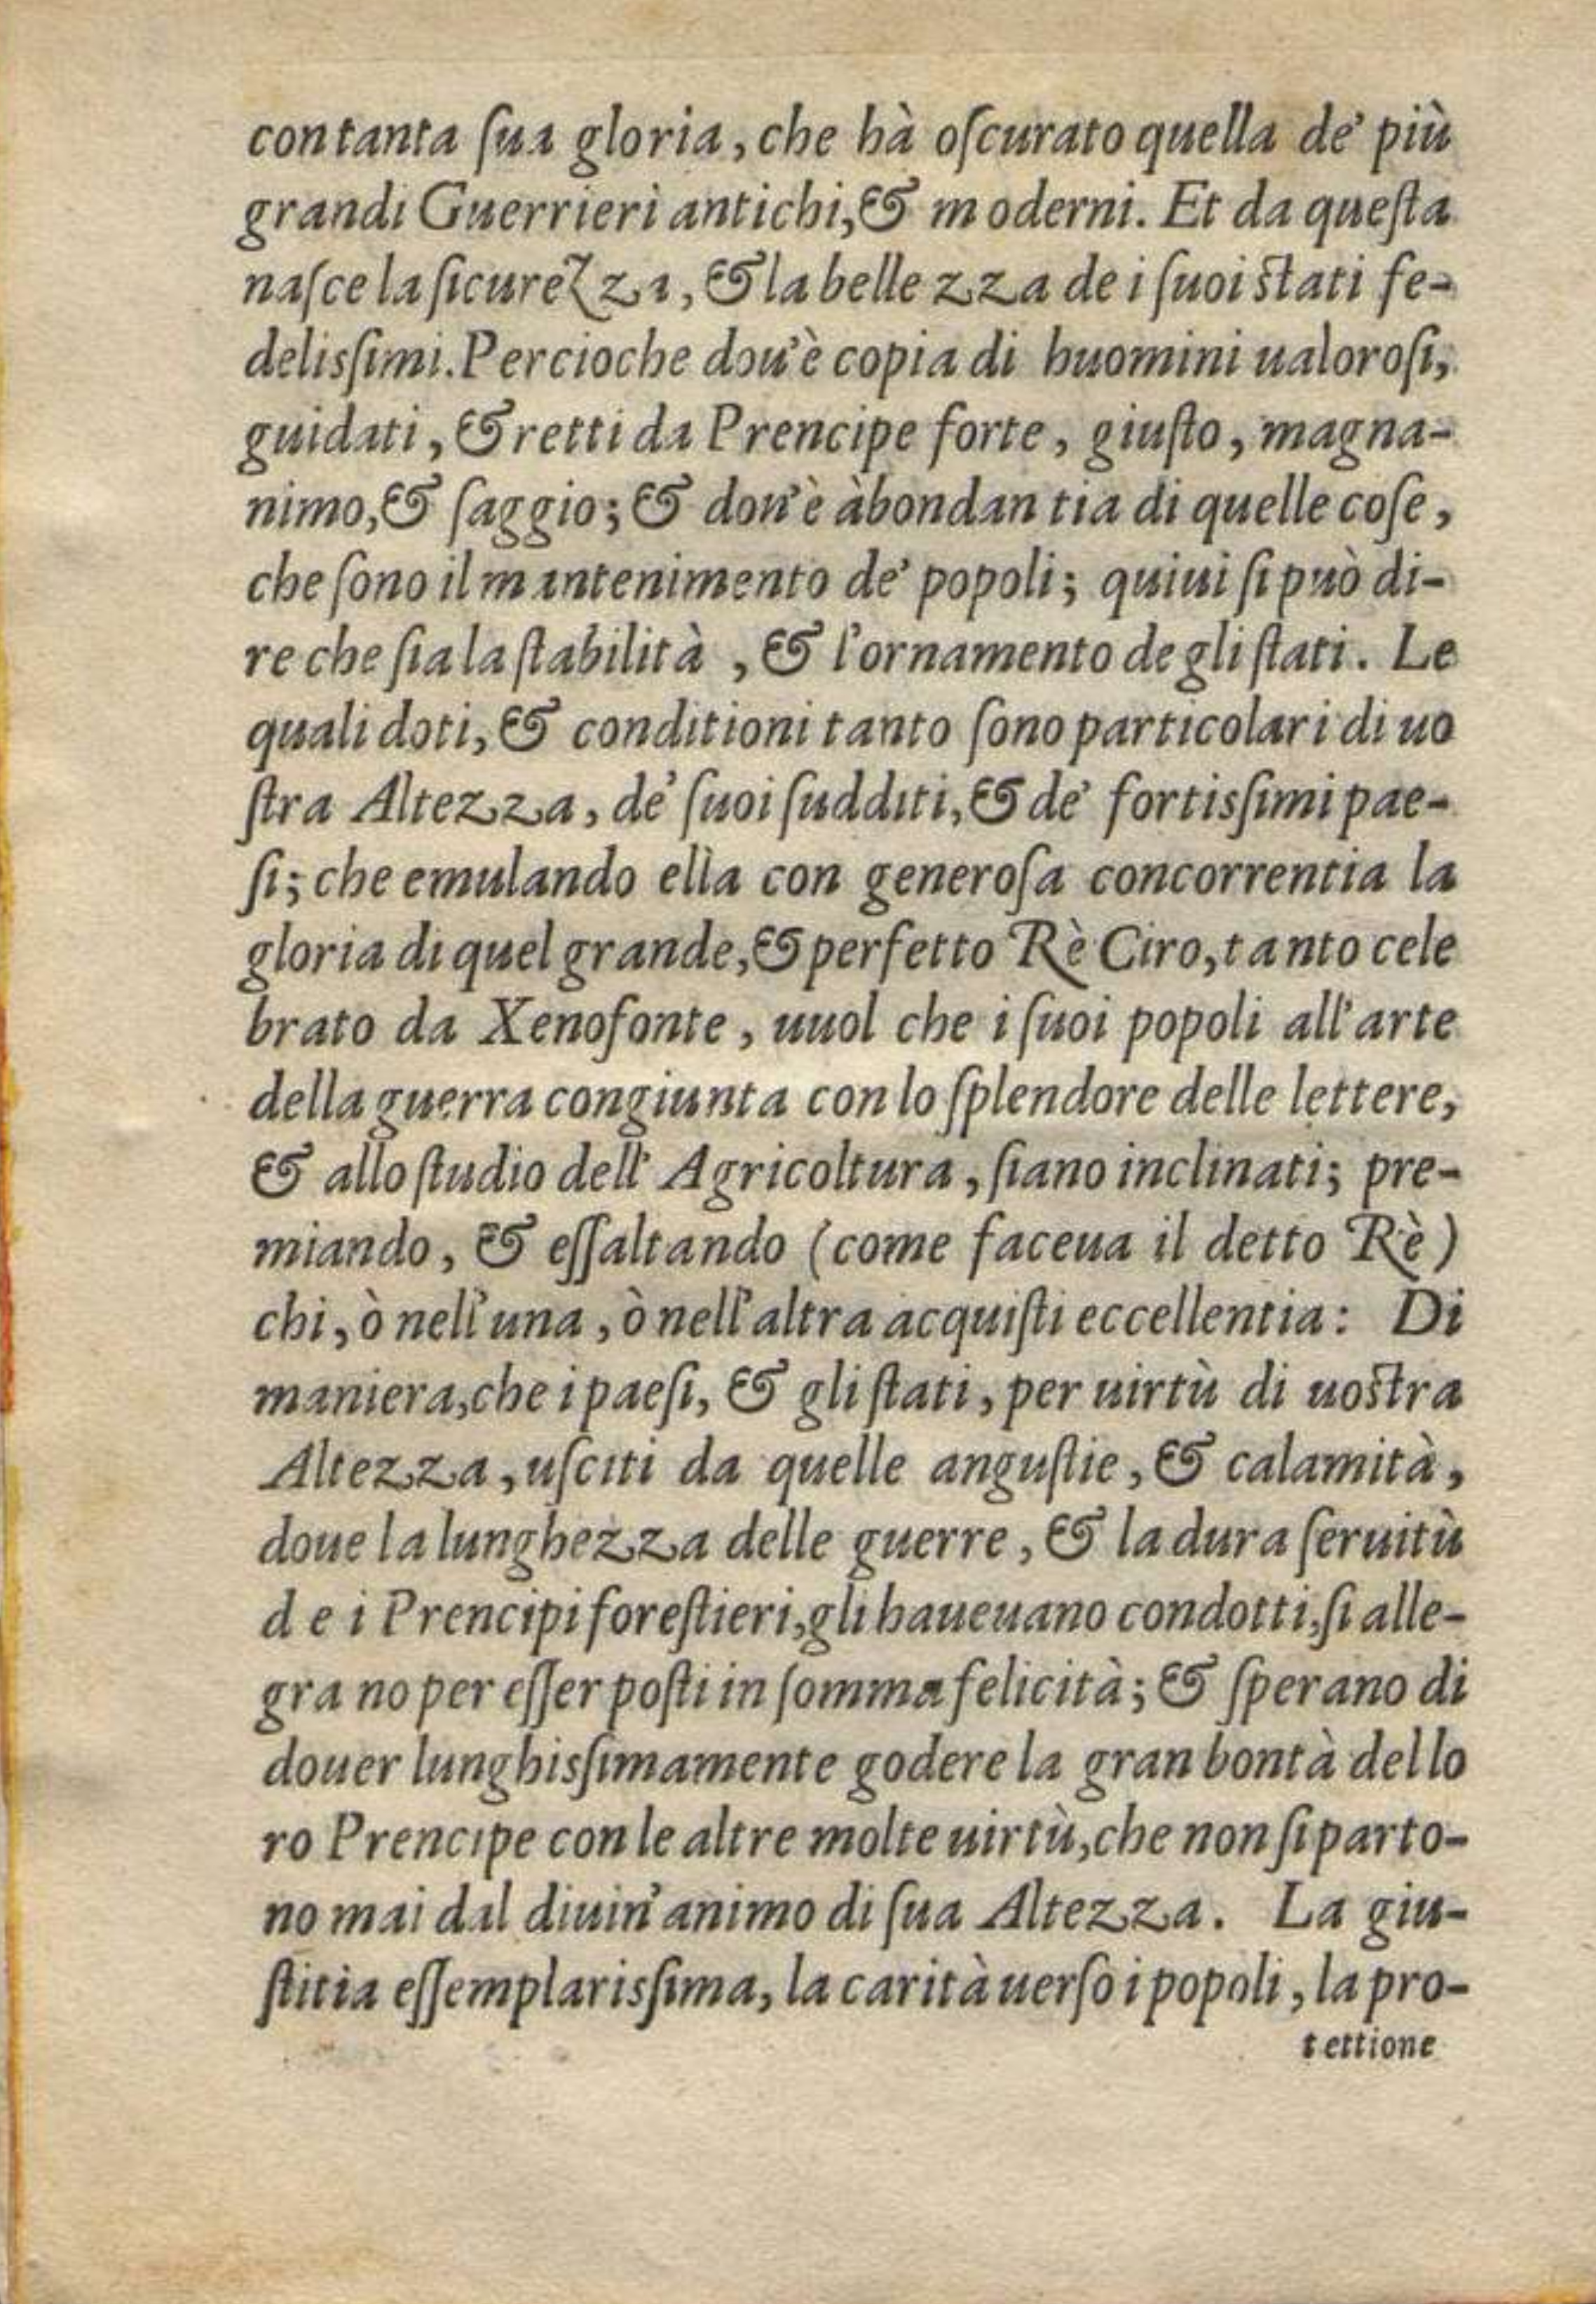 con tanta ſua gloria, che hà oſcurato quella de' più
grandi Guerrieri antichi, & moderni. Et da queſta
naſce la ſicurezza, & la bellezza de i ſuoi ſtati fe-
delisſimi. Percioche dou'è copia di huomini ualoroſi,
guidati, & retti da Prencipe forte, giuſto, magna-
nimo, & ſaggio; & dou'è àbondantia di quelle coſe,
che ſono il mantenimento de' popoli; quiui ſi può di-
re che ſia la ſtabilità, & l'ornamento de gli ſtati. Le
quali doti, & conditioni tanto ſono particolari di uo
ſtra Altezza, de' ſuoi ſudditi, & de' fortisſimi pae-
ſi; che emulando ella con generoſa concorrentia la
gloria di quel grande, & perfetto Rè Ciro, tanto cele
brato da Xenofonte, uuol che i ſuoi popoli all'arte
della guerra congiunta con lo ſplendore delle lettere,
& allo ſtudio dell'Agricoltura, ſiano inclinati; pre-
miando, & eſſaltando (come faceua il detto Rè)
chi, ò nell'una, ò nell'altra acquiſti eccellentia: Di
maniera, che i paeſi, & gli ſtati, per uirtù di uoſtra
Altezza, uſciti da quelle anguſtie, & calamità,
doue la lunghezza delle guerre, & la dura ſeruitù
de i Prencipi foreſtieri, gli haueuano condotti, ſi alle-
grano per eſſer poſti in ſomma felicità; & ſperano di
douer lunghisſimamente godere la gran bontà del lo
ro Prencipe con le altre molte uirtù, che non ſi parto-
no mai dal diuin'animo di ſua Altezza. La giu-
ſtitia eſſemplarisſima, la carità uerſo i popoli, la pro-
tettione